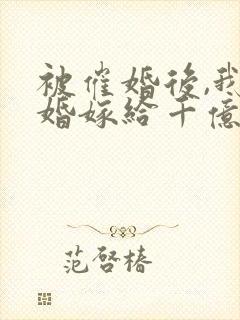 被催婚後,我
婚嫁給千億
范啓椿